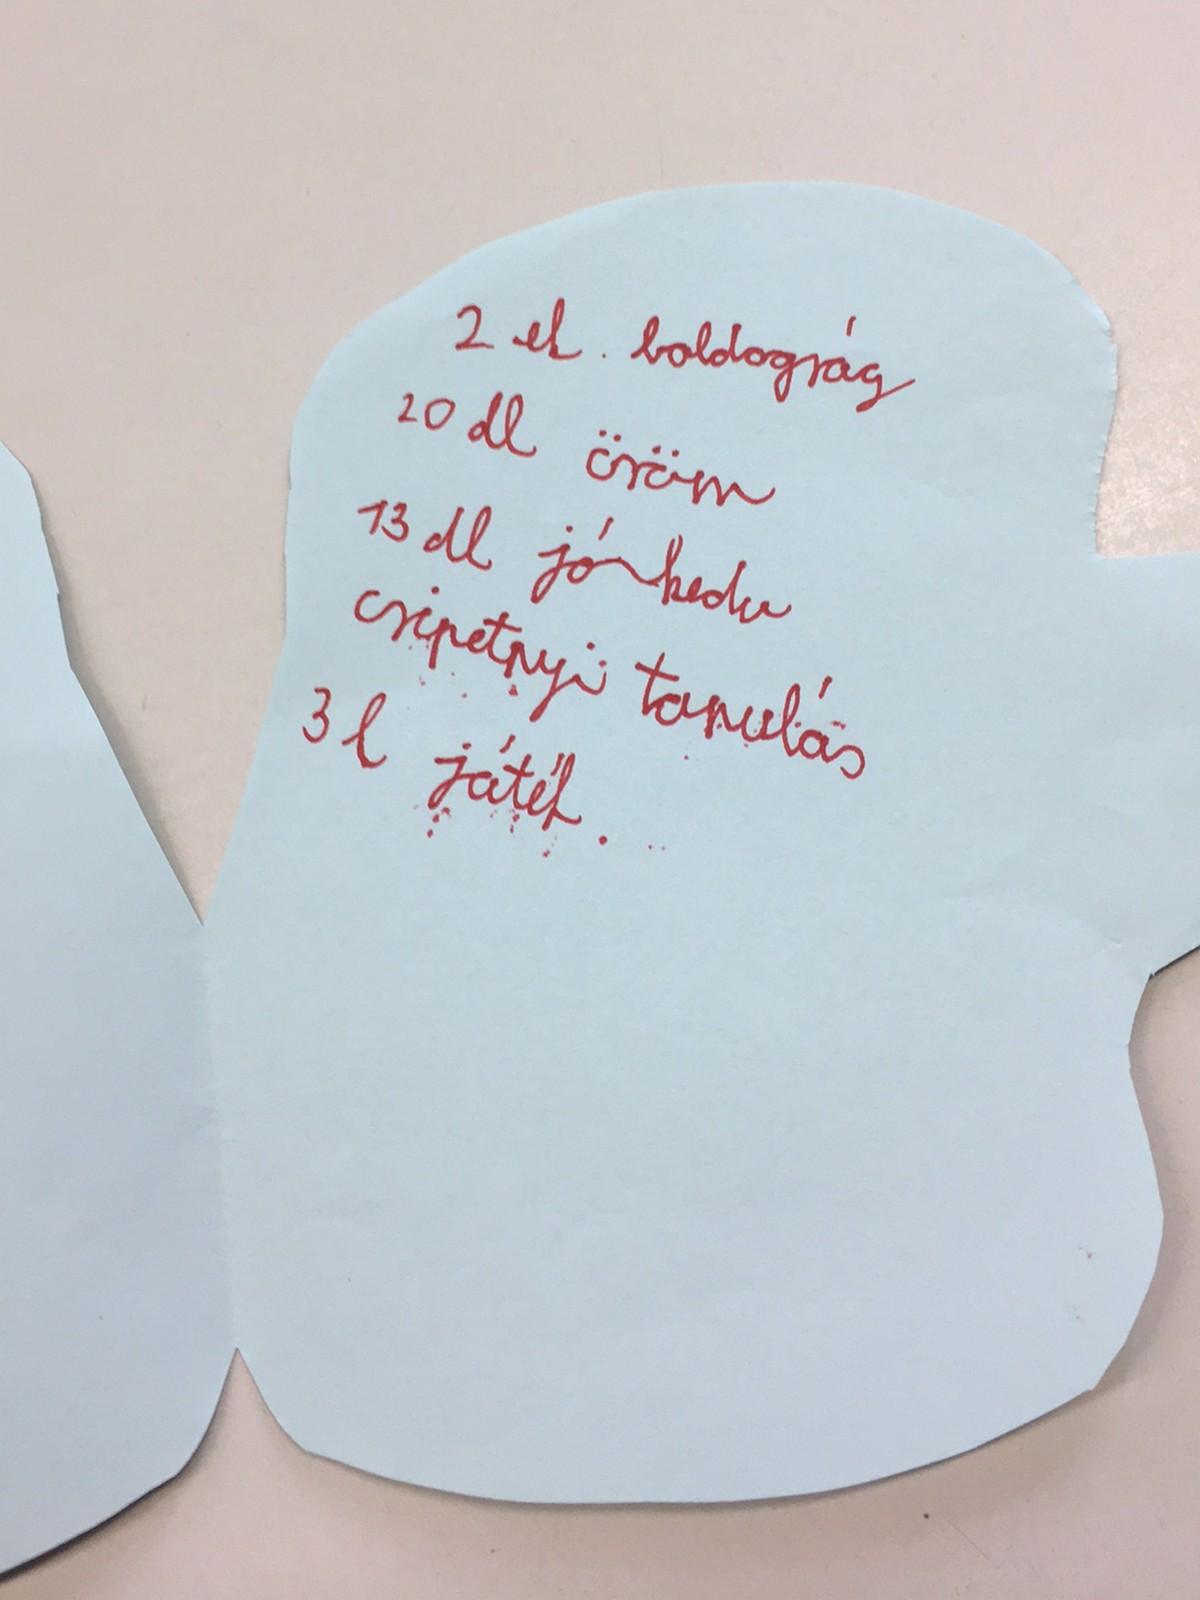 2 ek. boldogság
20 dl öröm
13 dl jó kedv
csipetnyi tanulás
3 l játék.